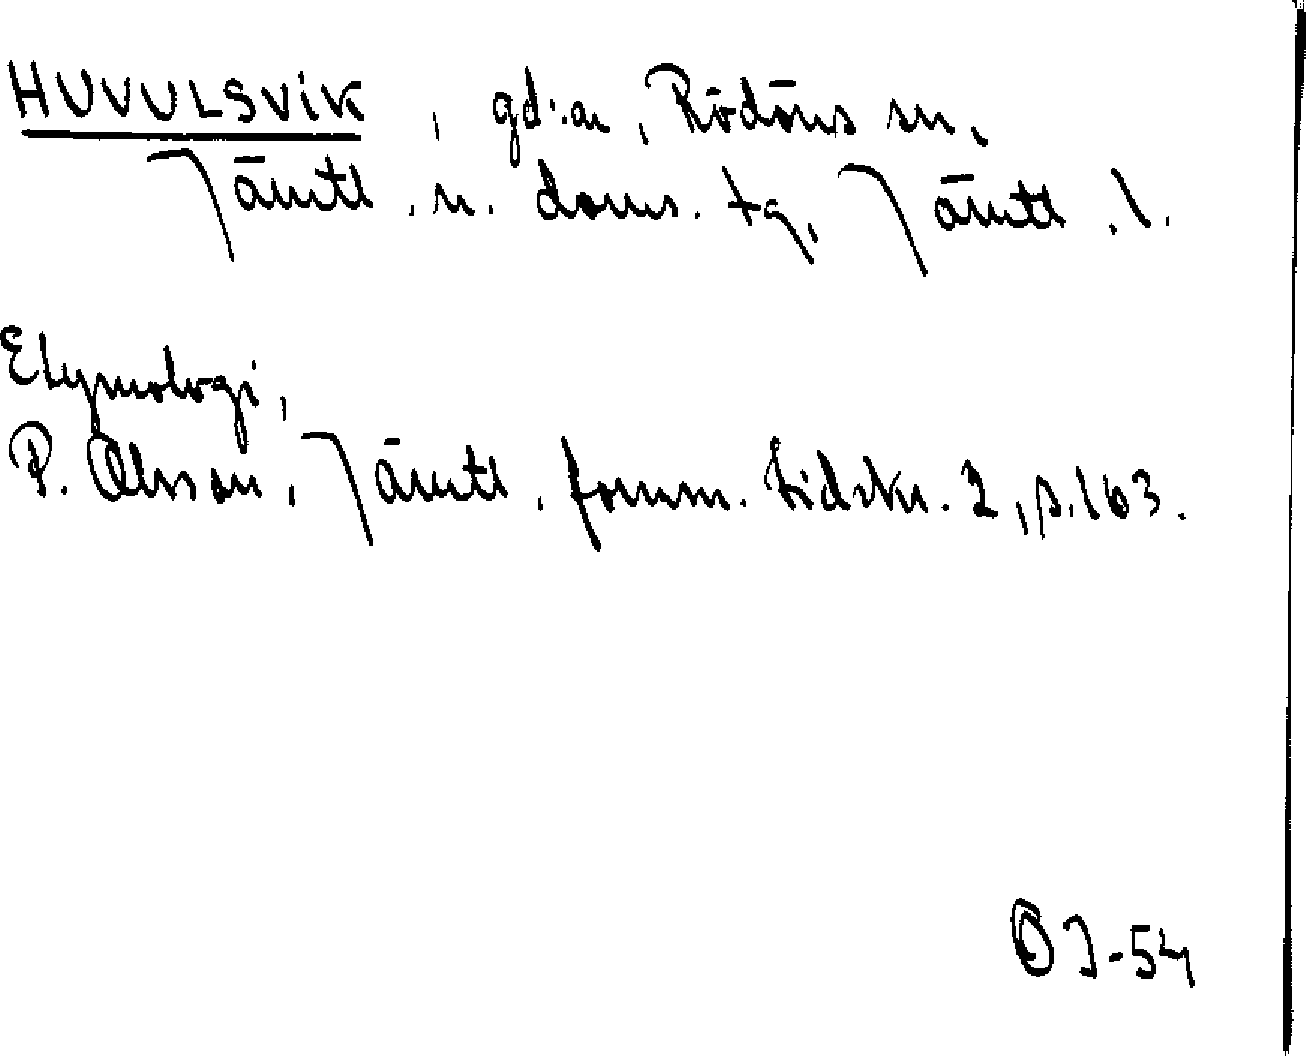 HUVULSVIK, gd:ar, Rödöns sn,
Jämtl. n. doms. tg, Jämtl. l.
Etymologi,
P. Olsson, Jämtl. fornm. tidskr. 2, s. 163.
OJ-54